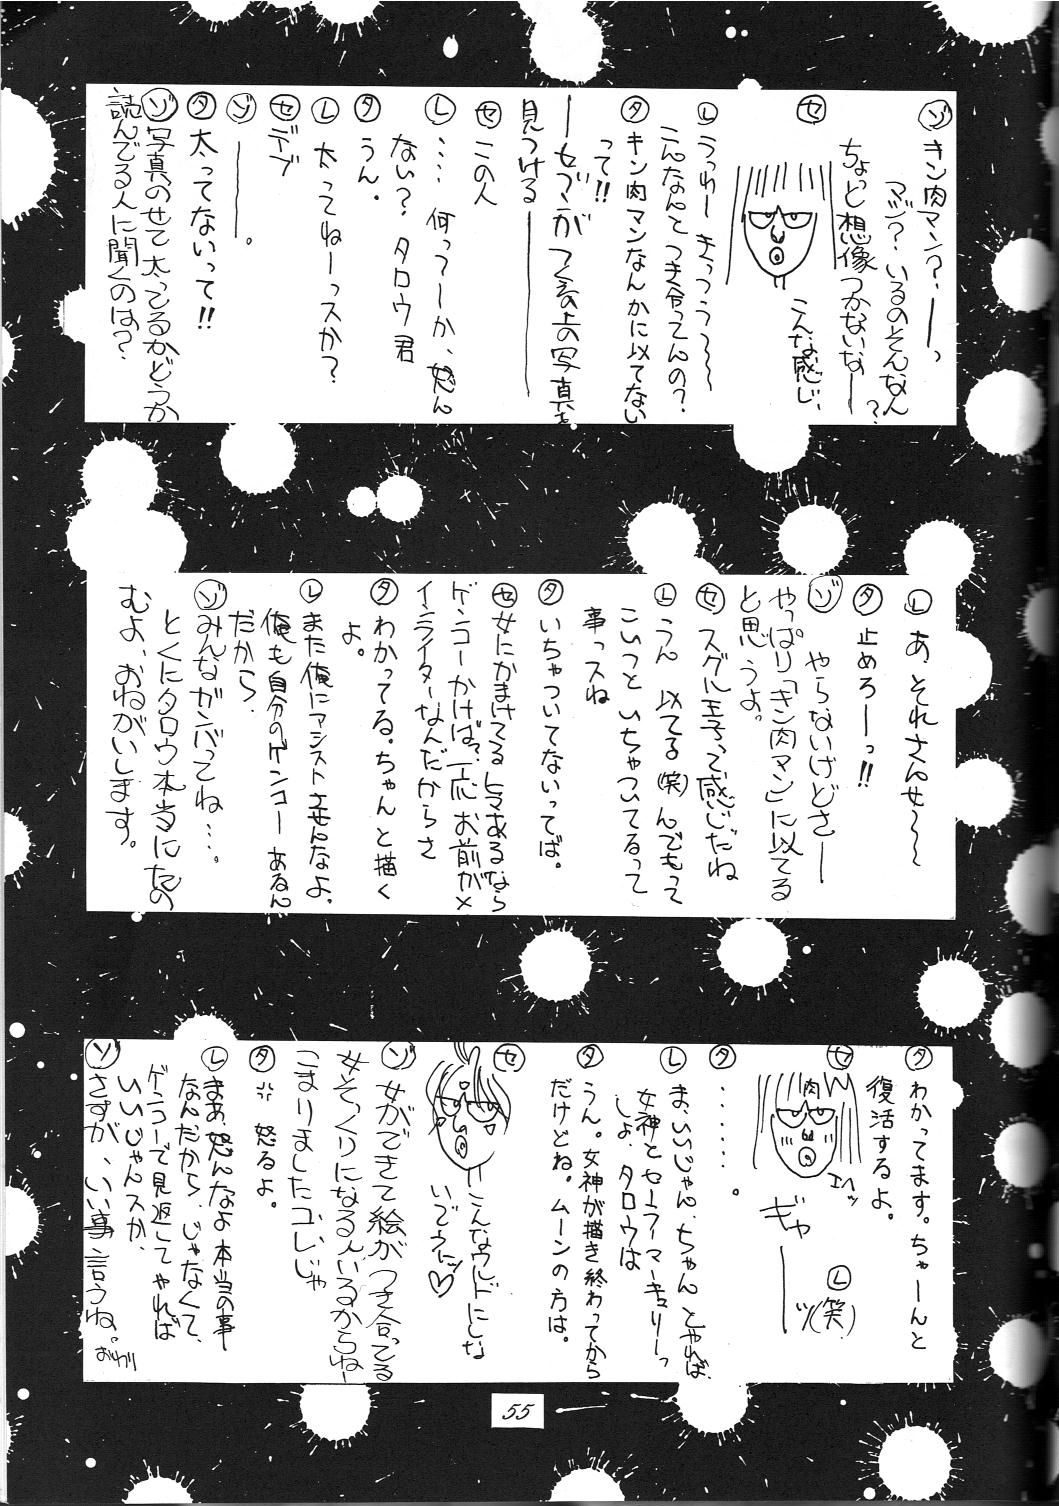 ゾ キン肉マン?ーっ
マジ?いるのそんなん?
ちょっと想像つかないなー
セ
こんな感じ、
レ うっわー きっつうー〜〜
こんなんと つき合ってんの?
タ キン肉マンなんかに以てない
って!!
見つける――
セ この人
レ …何っつーか、怒ん
ない?タロウ君
タ うん.
レ 太ってねーっスか?
セ デブ
ゾ ――。
タ 太ってないって!!
ゾ 写真のせて太ってるかどうか
読んでる人に聞くのは?
レ あ、それさんせ〜〜
タ 止めろーっ!!
ゾ やらないけどさー
やっぱり「キン肉マン」に以てる
と思うよ。
セ スグル王子って感じだね
レ うん 以てる(笑)んでもって
こいつと いちゃついてるって
事っスね
タ いちゃついてないってば。
セ 女にかまけてるヒマあるなら
ゲンコーかけば?一応お前がメ
インライターなんだからさ
タ わかってる。ちゃんと描く
よ。
レ また俺にアシストさせんなよ.
俺も自分のゲンコー あるん
だから.
ゾ みんながンバってね…。
とくにタロウ本当にたの
むよ、おねがいします。
タ わかってます。ちゃーんと
復活するよ。
セ
肉
エヘッ
ギャーーッ
レ (笑)
タ ・・・・・・。
レ ま、いいじゃん、ちゃんとやれば
女神とセーラーマーキュリーっ
しょ、タロウは
タ うん。女神が描き終わってから
だけどね。ムーンの方は。
セ
こんなウルドにしな
いでうにッ♡
ゾ 女ができて絵がつき合ってる
女そっくりになる人いるからねー
こまりましたコレじゃ
タ 怒るよ。
レ まあ、怒んなよ本当の事
なんだから、じゃなくて、
ゲンコーで見返してやれば
いいじゃんスか、
ゾ さすが、いい事言うね。
おわり
55